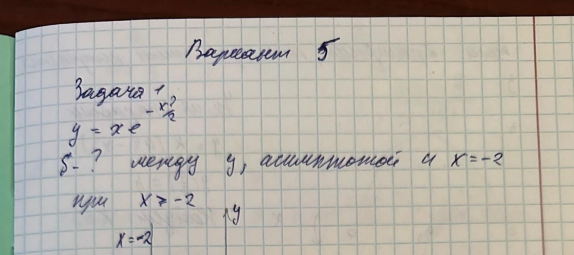 Вариант 5
Задача 1
y = xe^{-x²/2}
S-? между y, асимптотой и x = -2
при x > -2
y
x = -2